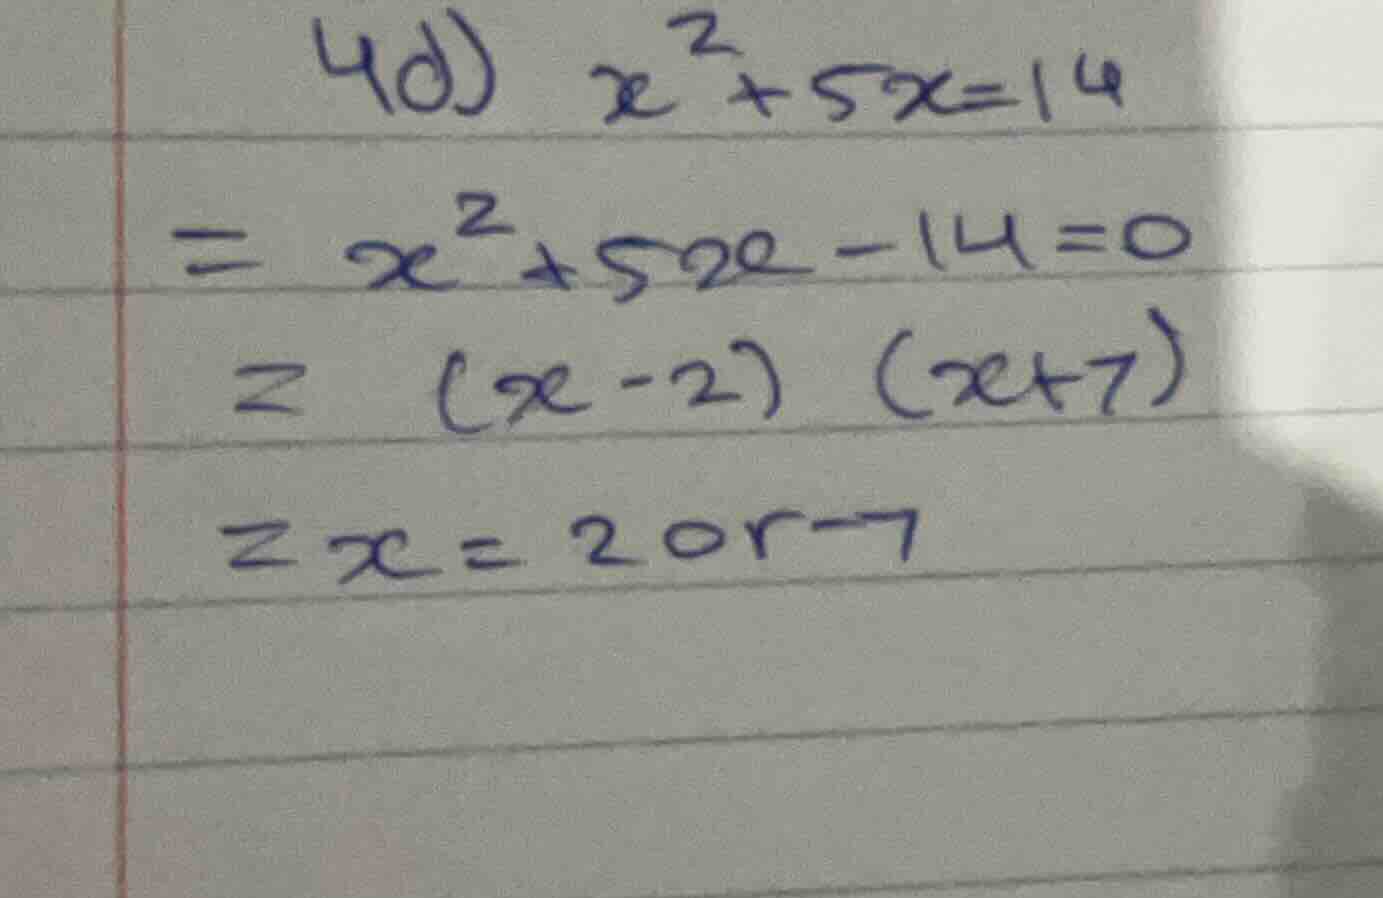 4d) x² + 5x = 14
= x² + 5x - 14 = 0
= (x - 2) (x + 7)
= x = 2 or -7